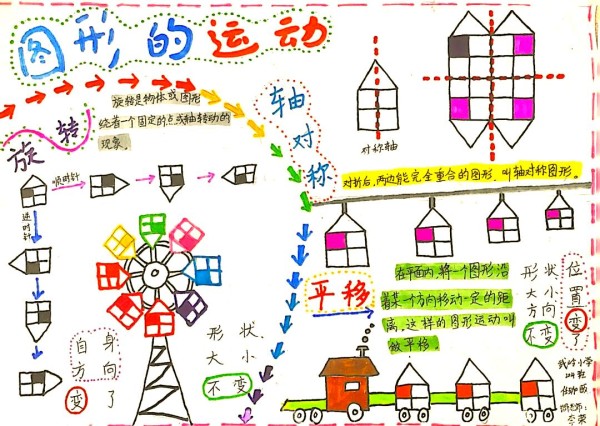 图形的运动
旋转
旋转是物体或图形
绕着一个固定的点或轴转动的
现象。
顺时针
逆时针
自身
方向
变了
形状、
大小
不变
轴对称
对称轴
对折后，两边能完全重合的图形，叫轴对称图形。
平移
在平面内，将一个图形沿
着某一个方向移动一定的距
离，这样的图形运动叫
做平移。
形状
大小
方向
不变
位置
变了